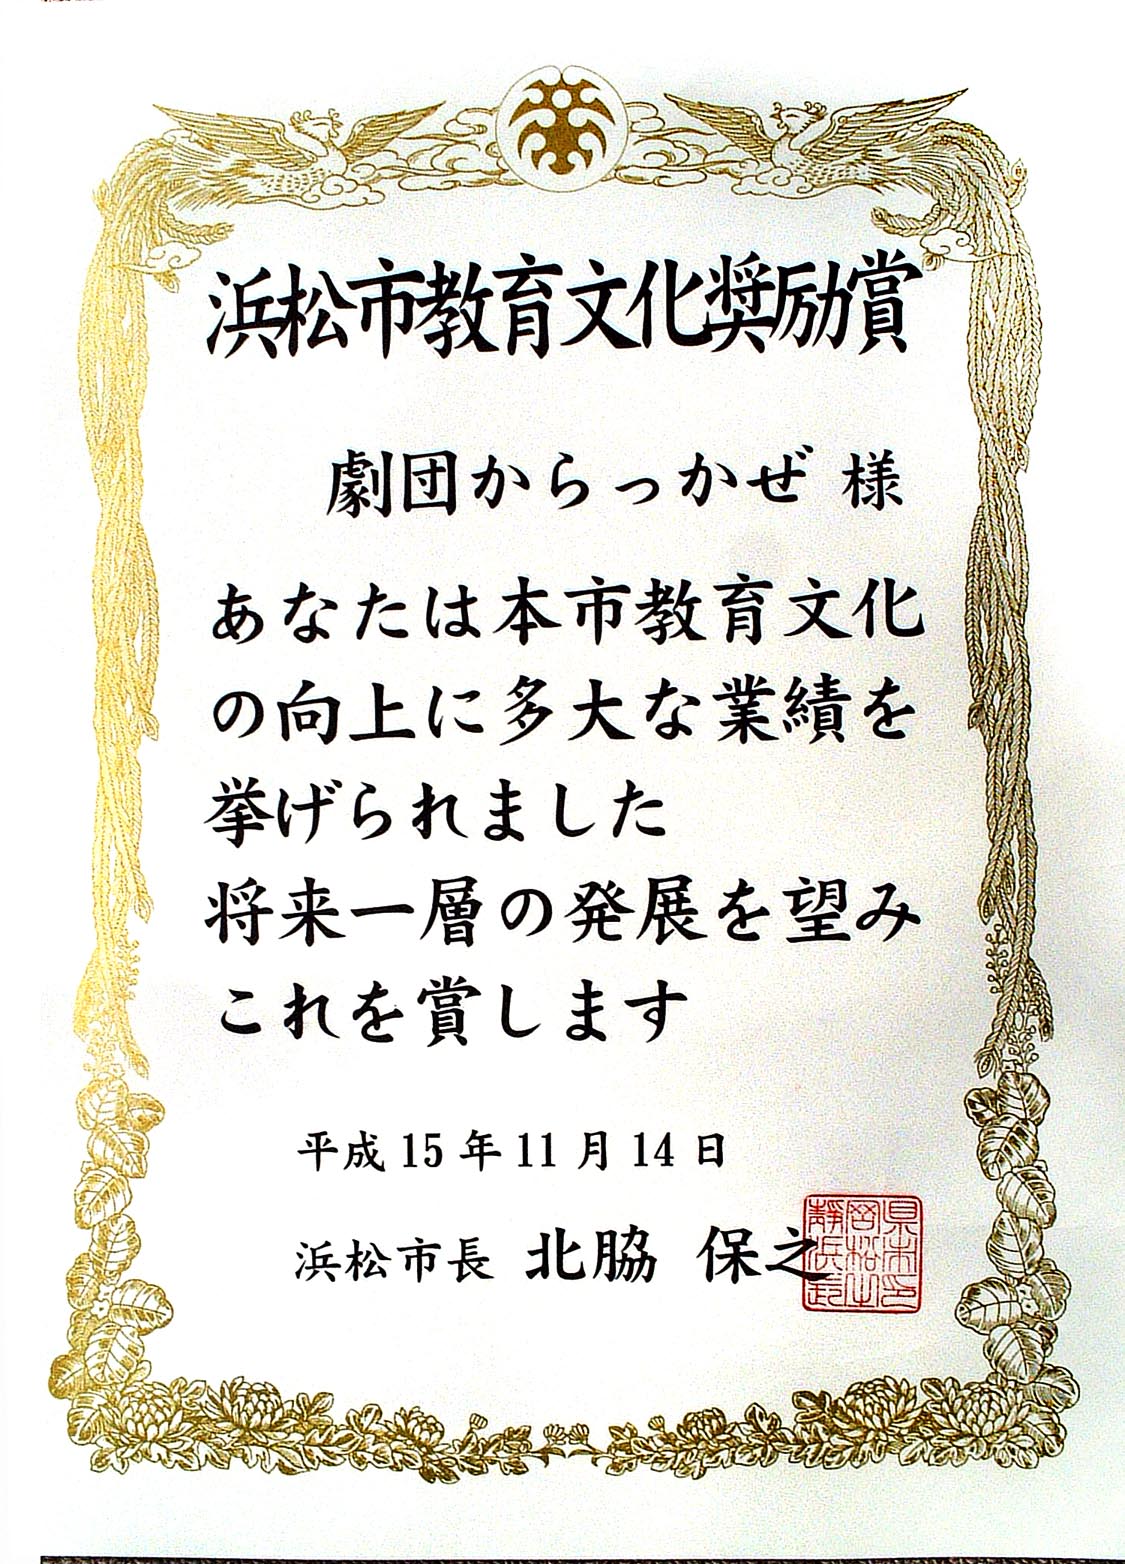 浜松市教育文化奨励賞
劇団からっかぜ 様
あなたは本市教育文化
の向上に多大な業績を
挙げられました
将来一層の発展を望み
これを賞します
平成 15 年 11 月 14 日
浜松市長 北脇 保之